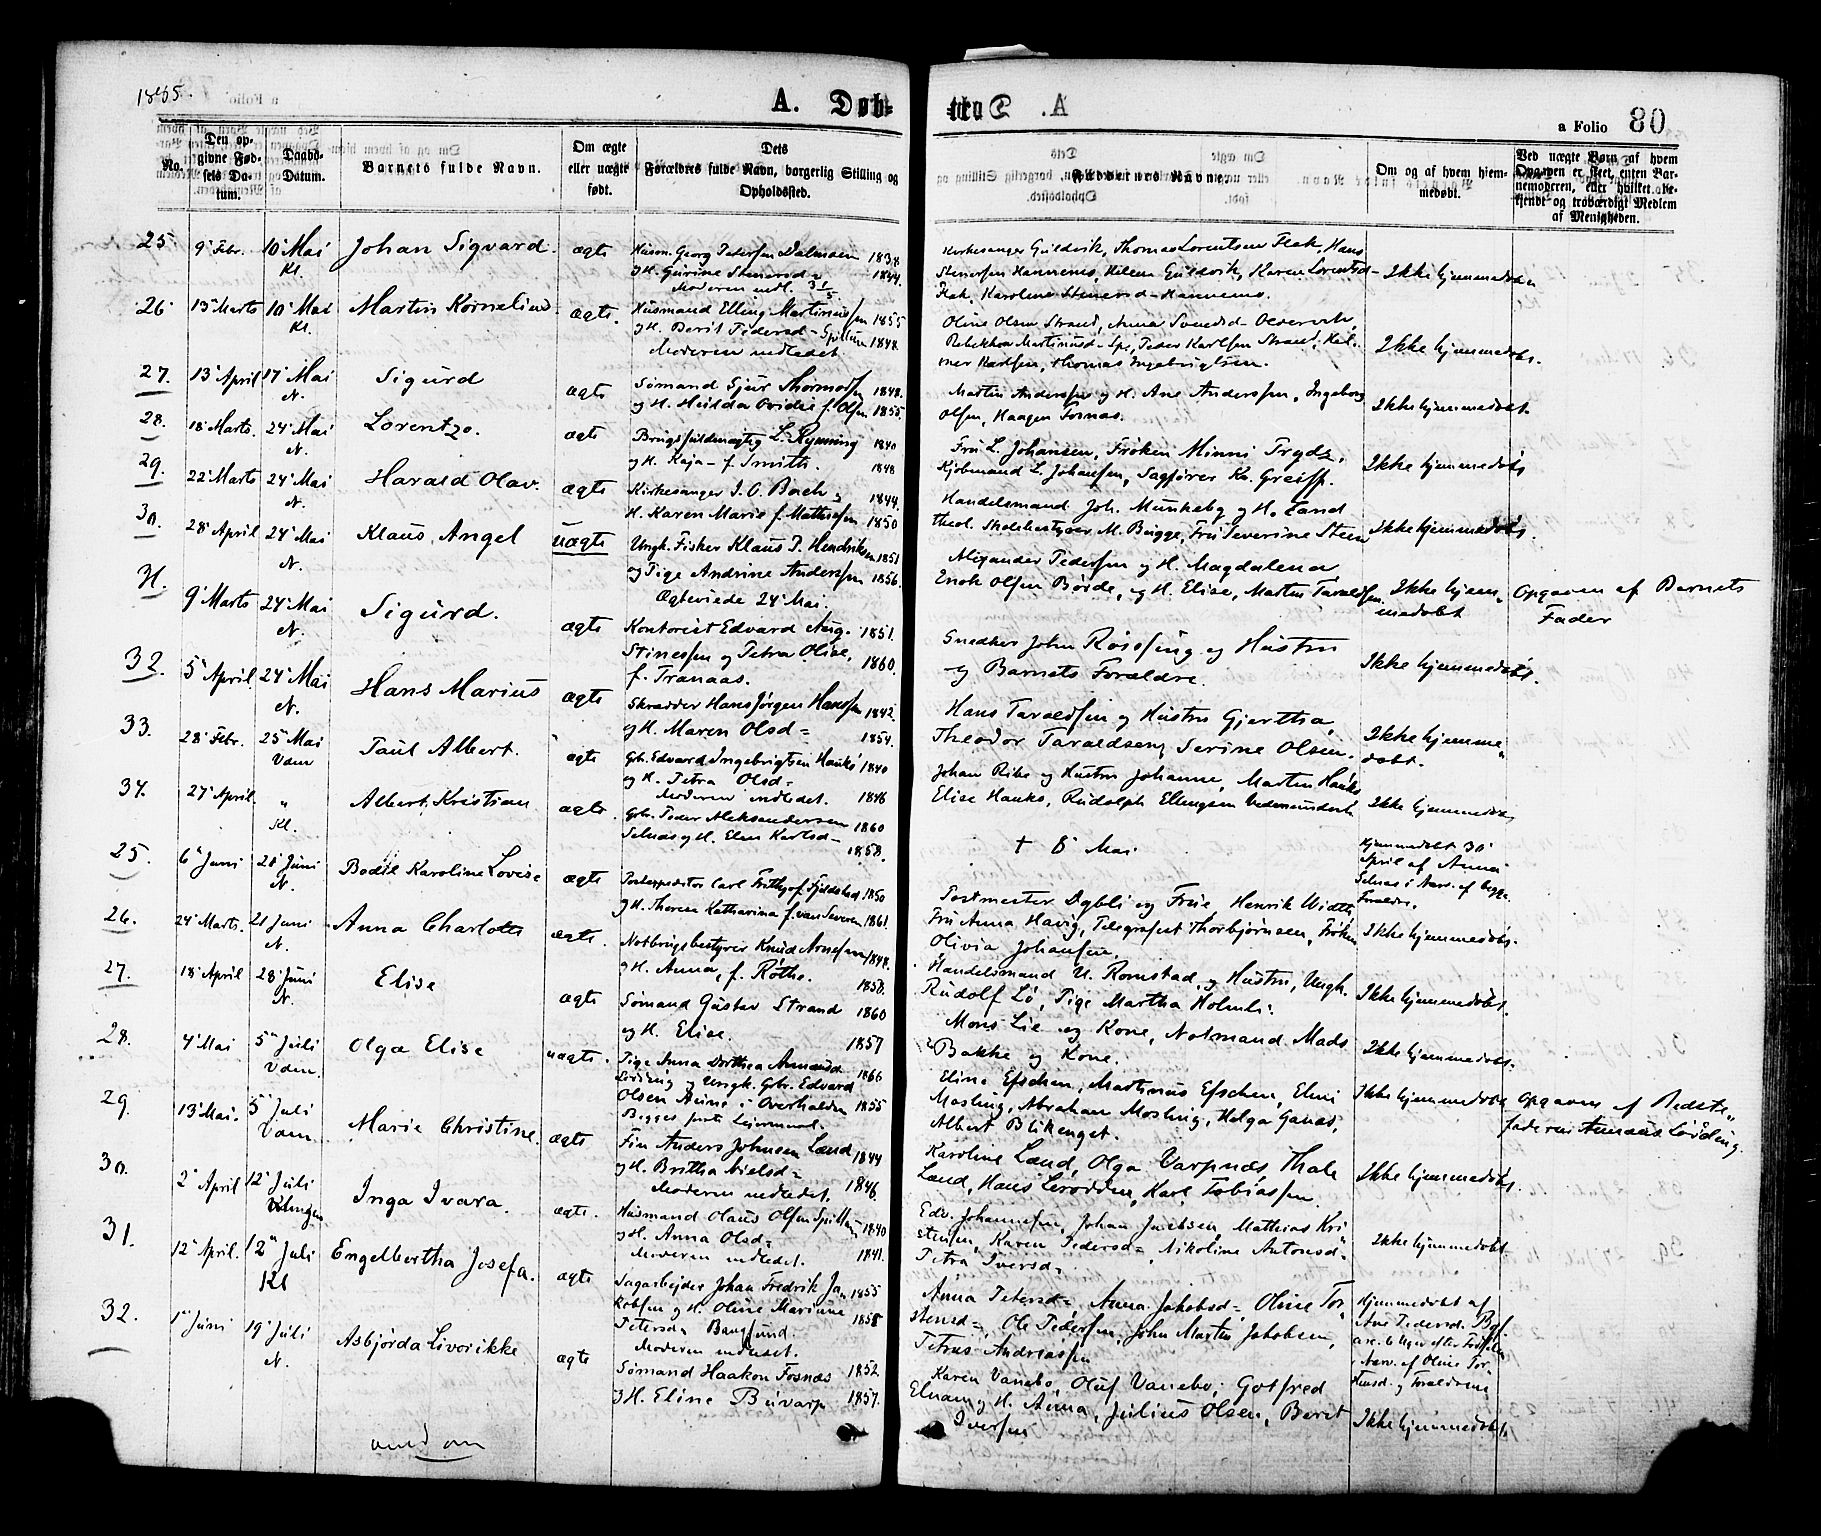 1885.
A. Døb-
a Folio 80
No.
Den op-
givne Fød-
sels Da-
tum.
Daabs-
Datum.
Barnets fulde Navn.
Om ægte
eller uægte
født.
Dets
Forældres fulde Navn, borgerlig Stilling og
Opholdssted.
Faddernes Navne.
Om og af hvem hjem-
medøbt.
Ved uægte Børn af hvem
Opgaven er skeet, enten Bar-
nemoderen, eller hvilket be-
kjendt og troværdigt Medlem
af Menigheden.
25 9' Febr. 10' Mai Kl. Johan Sigvard ægte
Husm. Georg Petersen Dalmoen 1838
og H. Gurine Stenersd= 1844.
Moderen indl.
Kirkesanger Guldvik, Thomas Lorentsen Flak, Hans
Stenersen Hannemo, Helena Guldvik, Karen Lorentsd-
Flak, Karoline Stenersd- Hannemo.
Ikke hjemmedøbt
26 13' Marts 10' Mai Kl. Martin Kornelius ægte.
Husmand Elling Martinussen 1855
og H. Berit Pedersd- Spillum 1848.
Moderen indledet.
Oline Olsen Strand, Anna Svendsd-
Rebekka Martinusd- Sps, Peder Karlsen Strand, Hil-
mer Karlsen, Thomas Ingebrigtsen.
Ikke hjemmedøbt.
27. 13' April 17' Mai N. Sigurd ægte
Sømand Sjur Thormodsen 1848.
og H. Hulda Ovidie f. Olsen 1855.
Martin Anderssen og H. Ane Anderssen, Ingeborg
Olsen, Haagen Fosnæs.
Ikke hjemmedøbt.
28. 18' Marts. 24' Mai N. Lorentzo. ægte
Brugsfuldmægtig L. Rynning 1840
og H. Kaja - f. Smith. 1848
Fru L. Johansen, Frøken Minni Tryde,
Kjøbmand L. Johansen, Sagfører Kr. Greiff.
Ikke hjemmedøbt
29. 22' Marts 24' Mai N. Harald Olav. ægte
Kirkesanger I. O. Bach og 1844.
H. Karen Marie f. Mathisen 1850
Handelsmand Joh. Munkeby og H. Tand
theol. Skolebestyrer M. Brigge, Fru Severine Steen
Ikke hjemmedøbt.
30. 28' April 24' Mai N. Klaus Angel uægte
Ungk. Fisker Klaus P. Hendriksen 1851
og Pige Andrine Anderssen 1856.
Ægteviede 24' Mai.
Alexander Pedersen og H. Magdalena,
Enok Olsen Børde, og H. Elise, Martin Taraldsen.
Ikke hjem-
medøbt
Opgaven af Barnets
Fader
31. 9' Marts 24' Mai N. Sigurd. ægte
Kontorist Edvard Aug. 1851.
Stinessen og Petra Olise, 1860.
f. Tranaas.
Snedker John Røssing og Hustru
og Barnets Forældre.
Ikke hjemmedøbt.
32. 5' April. 24' Mai N. Hans Marius ægte
Skrædder Hans Jørgen Hanssen 1842.
og H. Maren Olsd= 1854.
Hans Taraldsen og Hustru Gjertha,
Theodor Taraldsen, Serine Olsen.
Ikke hjemme-
døbt.
33. 28' Febr. 25' Mai Vdm Paul Albert. ægte
Grb. Edvard Ingebrigtsen Haukø 1840
og H. Petra Olsd= 1846
Moderen indledet.
Johan Ribe og Hustru Johanne, Martin Haukø
Elise Haukø, Rudolph Ellingsen
Ikke hjemmedøbt
34. 27' April " Kl. Albert Kristian ægte.
Grb. Peder Aleksandersen 1860
Selnæs og H. Elen Karlsd- 1858.
† 8' Mai
Hjemmedøbt 30'
April af Anna
Selnæs i Nærv. af begge
Forældre.
25. 6' Juni 20' Juni N. Bodil Karoline Lovise ægte
Postexpeditør Carl Frithjof Fjeldstad 1850
og H. Therese Katharina f. van Severen 1861.
Postmester Dybli og Frue Henrik Width
Fru Anna Havig, Telegrafist Thorbjørnsen, Frøken
Olivia Johansen.
Ikke hjemmedøbt.
26. 24' Marts. 21' Juni N. Anna Charlotte ægte.
Notbrugsbestyrer Knud Arnesen 1848.
og H. Anna, f. Røthe. 1858.
Handelsmand U. Romstad, og Hustru, Ungk.
Rudolf Lø, Pige Martha Holmli.
Ikke hjemmedøbt.
27. 18' April 28' Juni N. Elise ægte
Sømand Gustav Strand 1860
og H. Elise. 1857
Mons Lie og Kone, Notmand Mads
Bakke og Kone.
Ikke hjemmedøbt.
28. 4' Mai 5' Juli Vdm. Olga Elise uægte.
Pige Anna Dorthea Amundsd. 1866
Løiding og Ungk. Grb. Edvard
Olsen Aune i Overhalden 1855
Begges første Leiermaal.
Eline Efschen, Martinus Efschen, Elmi
Mosling, Abrahan Mosling, Helga Ganæs,
Albert Blikenget.
Ikke hjemmedøbt
Opgaven af Bedste-
faderen Amund Løiding.
29. 13' Mai. 5' Juli Vdm. Marie Christine. ægte
Fin Anders Johnsen Lænd 1844
og H. Britha Nielsd= 1846.
Moderen indledet.
Karoline Lænd, Olga Varpnæs, Thale
Lænd, Hans Lerodden, Karl Tobiassen.
Ikke hjemmedøbt.
30. 2' April 12' Juli Klingen Inga Ivara. ægte.
Husmand Olaus Olsen Spillum 1840
og H. Anna Olsd= 1841.
Moderen indledet.
Edv. Johannesen, Johan Jacobsen, Mathias Kri-
stensen, Karen Pedersd=, Nikoline Antonsd=
Petra Iversd=
Ikke hjemmedøbt
31. 12' April. 12' Juli Kl Engelbertha Josefa. ægte
Sagarbejder Johan Fredrik Ja- 1855
kobsen og H. Oline Marinne 1858
Petersd= Bangsund.
Moderen indledet.
Anna Petersd=, Anna Jakobsd=, Oline Tor-
stensd=, Ole Pedersen, John Martin Jakobsen,
Petrus Andreassen
Hjemmedøbt af
Ane Pedersd.
6 Uger efter Fødselen
i Nærv. af Oline Tor-
stensd. og Forældrene
32. 1' Juni 19' Juli N. Asbjørda Livorikke ægte
Sømand Haakon Fosnæs 1852
og H. Eline Buvarp 1857.
Karen Vanebo, Oluf Vanebo, Gotfred
Elnan og H. Anna, Julius Olsen, Beret
Iversen
Ikke hjemmedøbt.
vend om